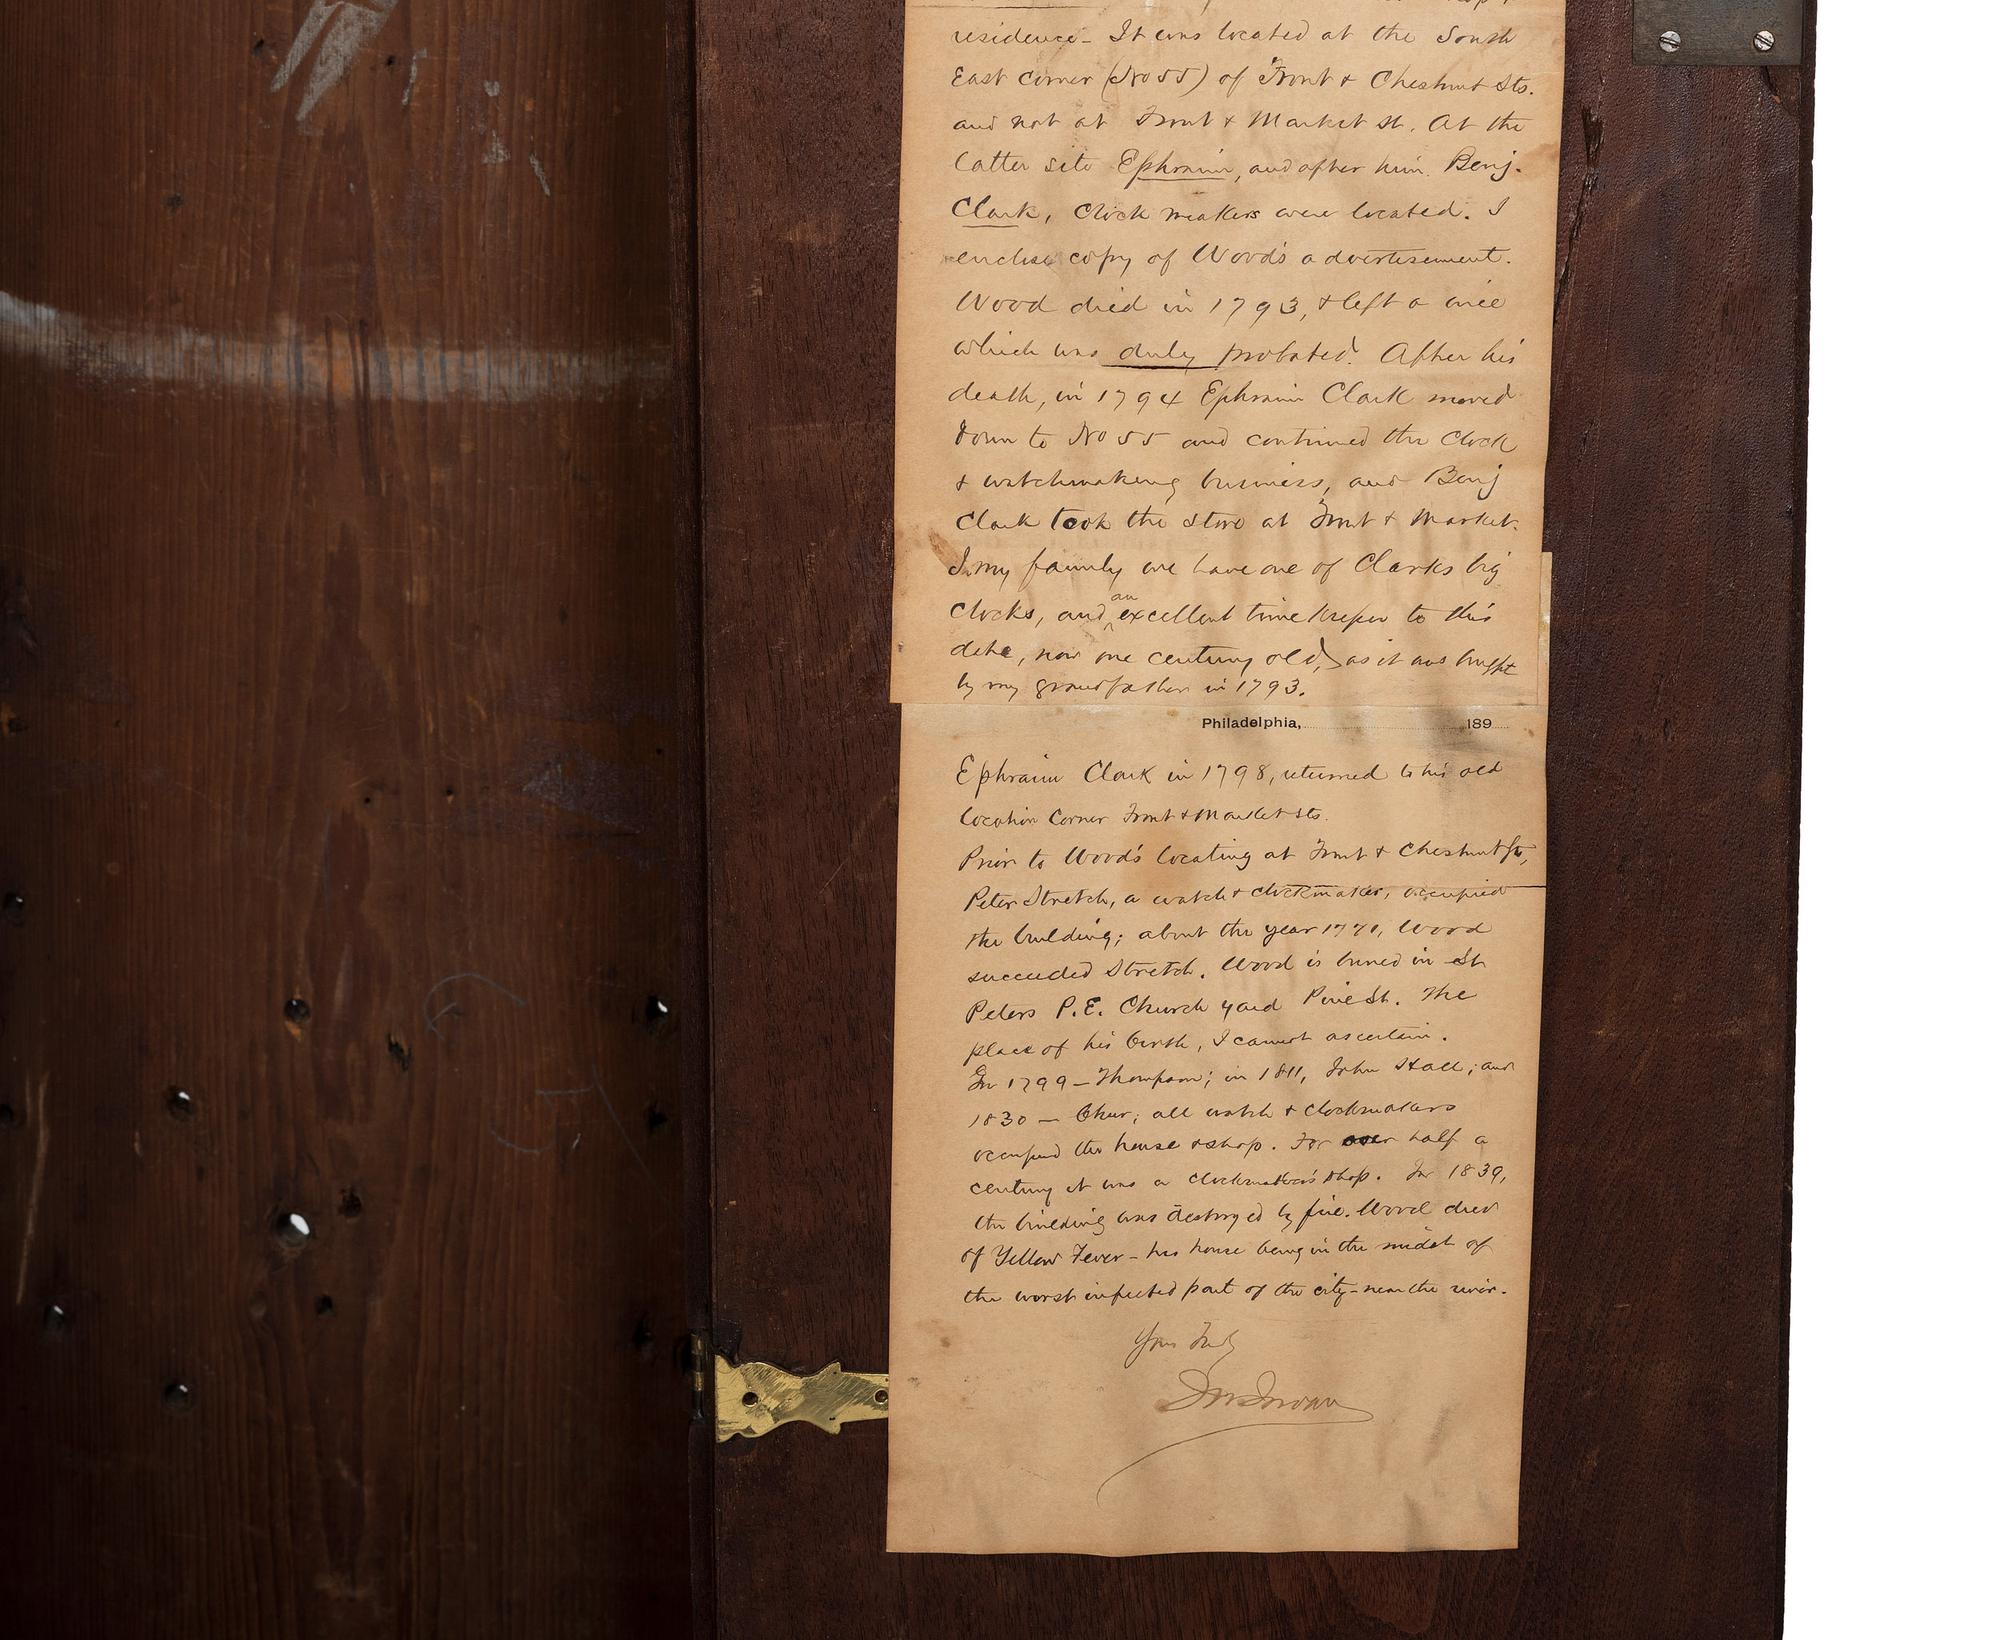 residence - It was located at the South
East Corner (No 55) of Front & Chestnut Sts.
and not at Front & Market St. At the
latter site Ephraim, and after him Benj.
Clark, Clock makers were located. I
enclose copy of Wood's advertisement.
Wood died in 1793, & left a will
which was duly probated. After his
death, in 1794 Ephraim Clark moved
down to No 55 and continued the Clock
& watchmaking business, and Benj
Clark took the store at Front & Market.
In my family we have one of Clarks big
Clocks, and an excellent time keeper to this
date, now one century old, as it was bought
by my grandfather in 1793.
Philadelphia, 189
Ephraim Clark in 1798, returned to his old
location Corner Front & Market Sts.
Prior to Wood's locating at Front & Chestnut Sts,
Peter Stretch, a watch & clockmaker, occupied
the building; about the year 1771, Wood
succeeded Stretch. Wood is buried in St
Peters P.E. Church yard Pine St. The
place of his birth, I cannot ascertain.
In 1799 - Thompson; in 1811, John Stall; and
1830 - ; all watch & clockmakers
occupied the house & shop. For over half a
century it was a clockmaker's shop. In 1839,
the building was destroyed by fire. Wood died
of Yellow Fever - his house being in the midst of
the worst infected part of the city - near the river.
Yours Truly